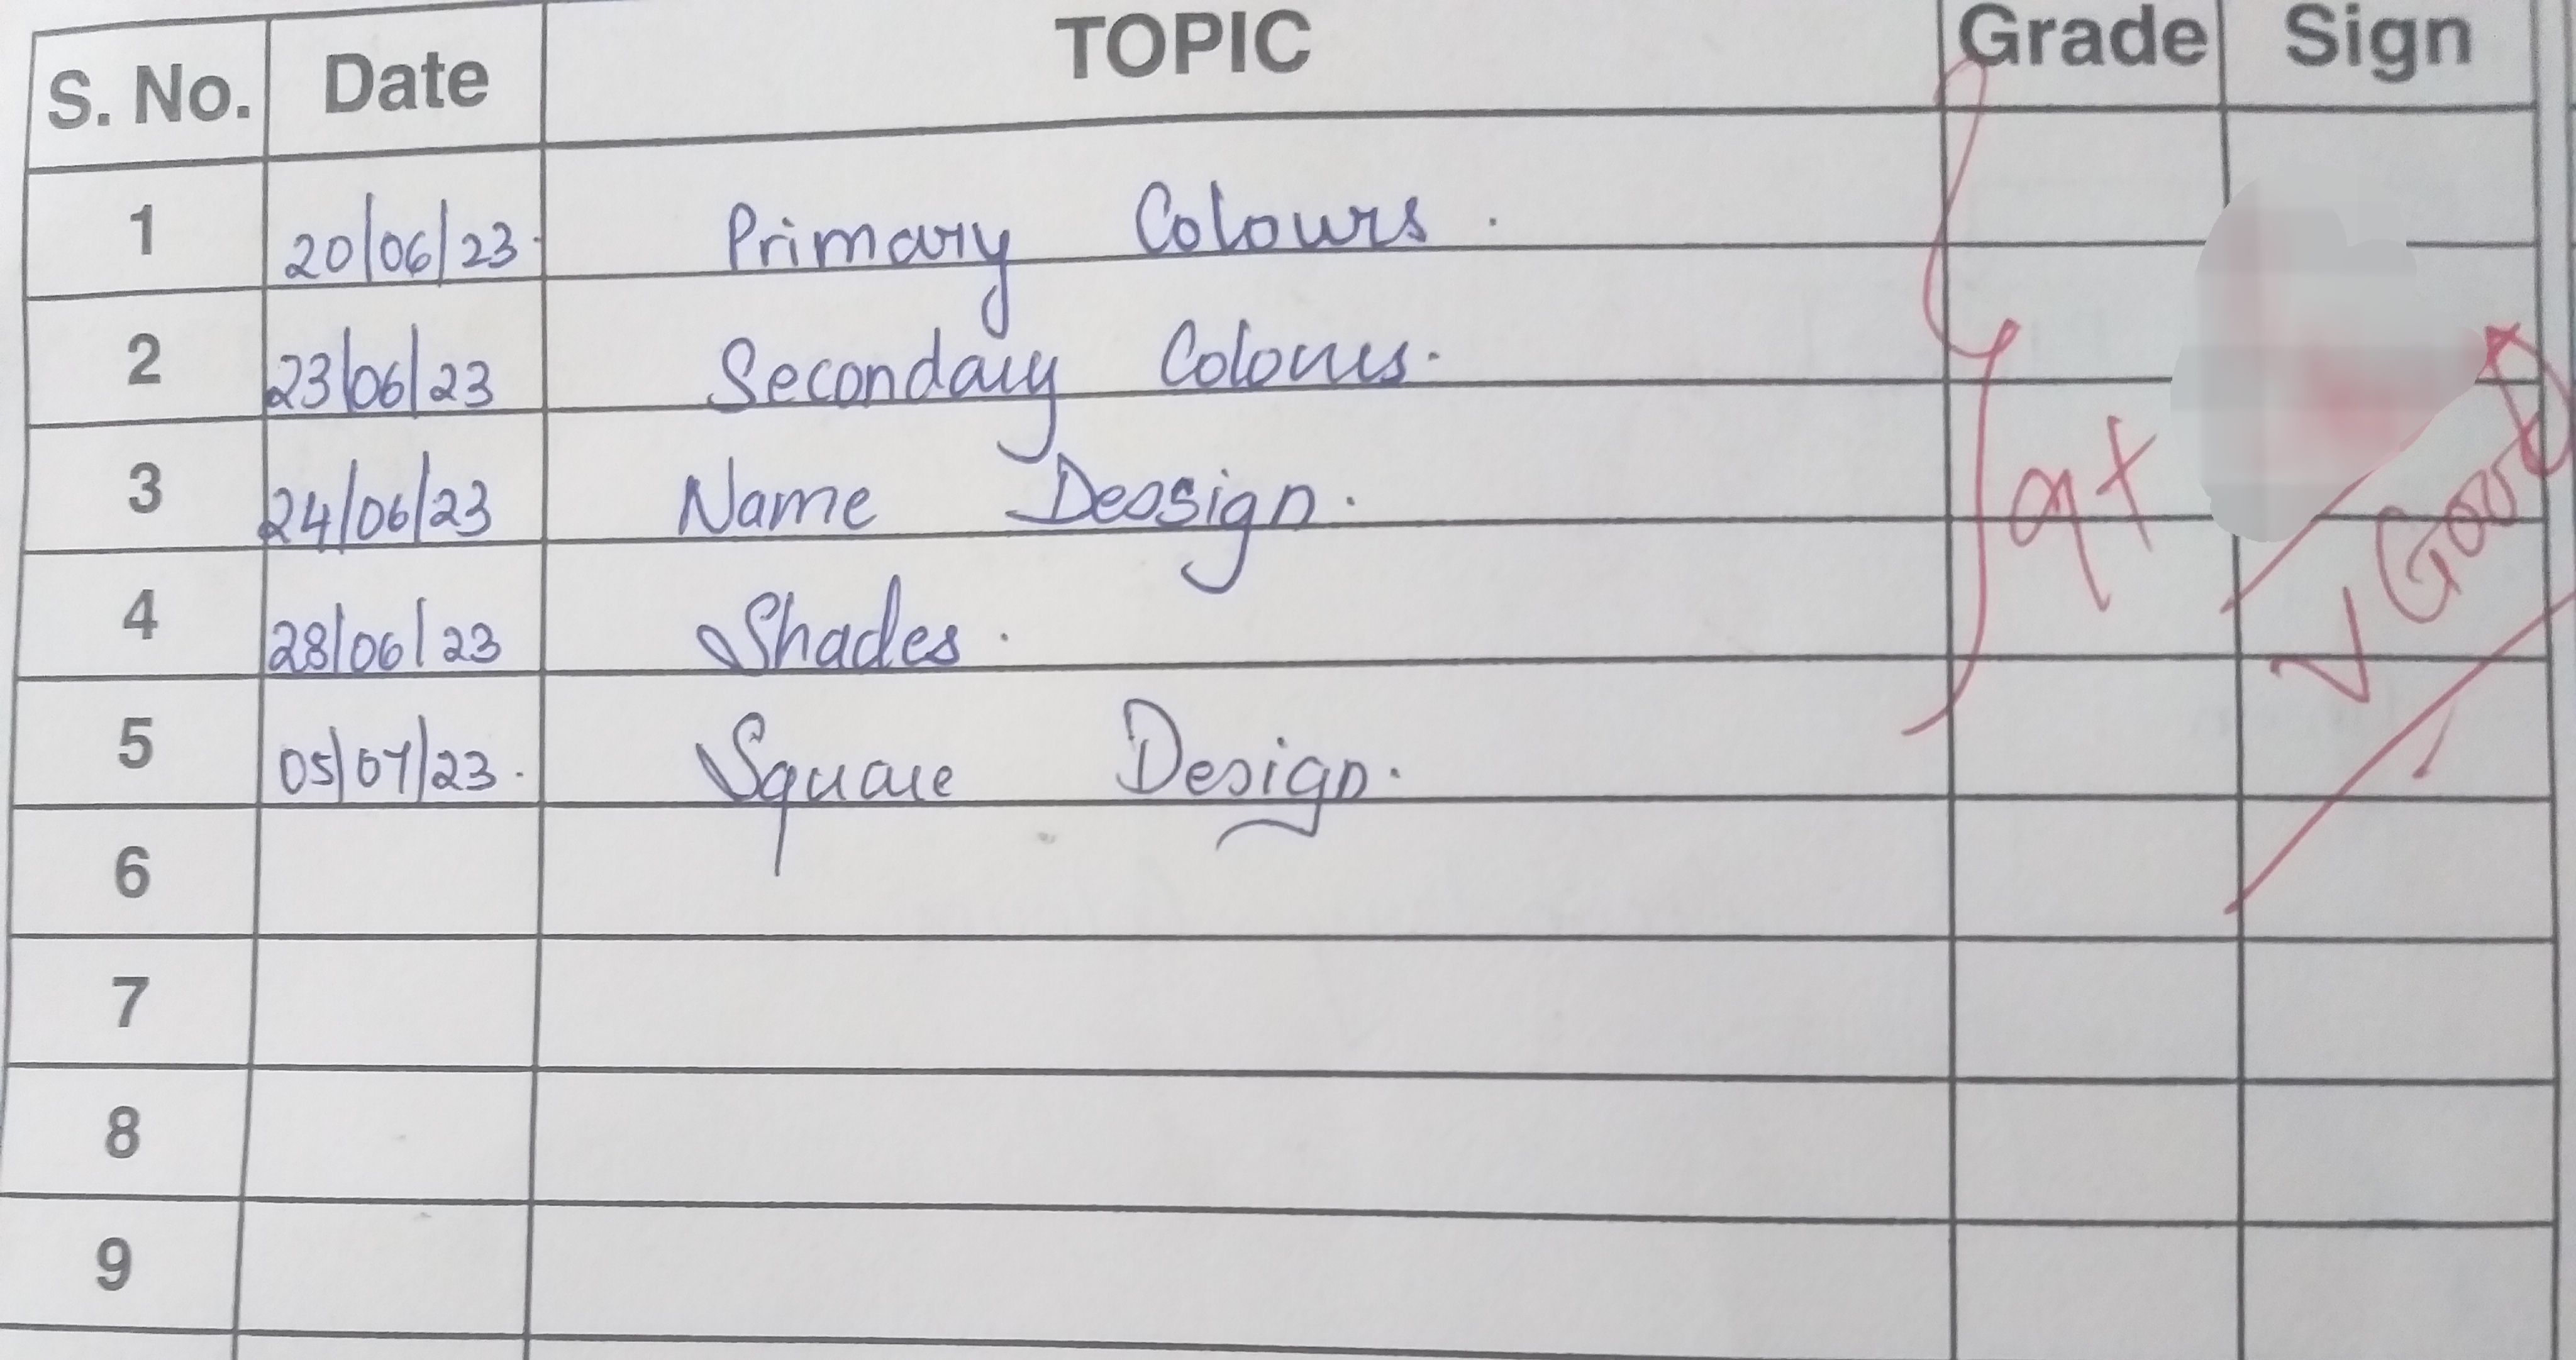 S. No. Date TOPIC Grade Sign
1 20/06/23. Primary Colours.
2 23/06/23 Secondary Colours.
3 24/06/23 Name Deosign.
4 28/06/23 Shades.
5 05/07/23. Square Design.
V Good
6
7
8
9